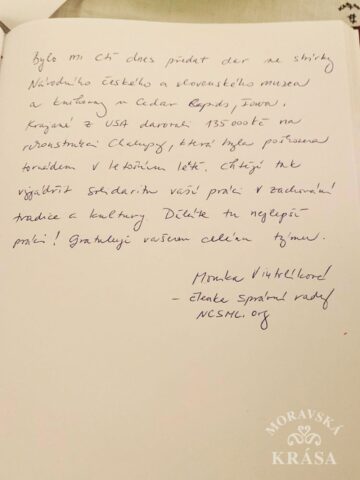 Bylo mi ctí dnes předat dar ze sbírky
Národního českého a slovenského muzea
a knihovny v Cedar Rapids, Iowa.
Krajané z USA darovali 135 000 Kč na
rekonstrukci Chalupy, která byla poškozena
tornádem v letošním létě. Chtějí tak
vyjádřit solidaritu vaší práci v zachování
tradice a kultury. Děláte tu nejlepší
práci! Gratuluji vašemu celému týmu.
Monika
– členka správní rady
NCSML.org
MORAVSKÁ
KRÁSA